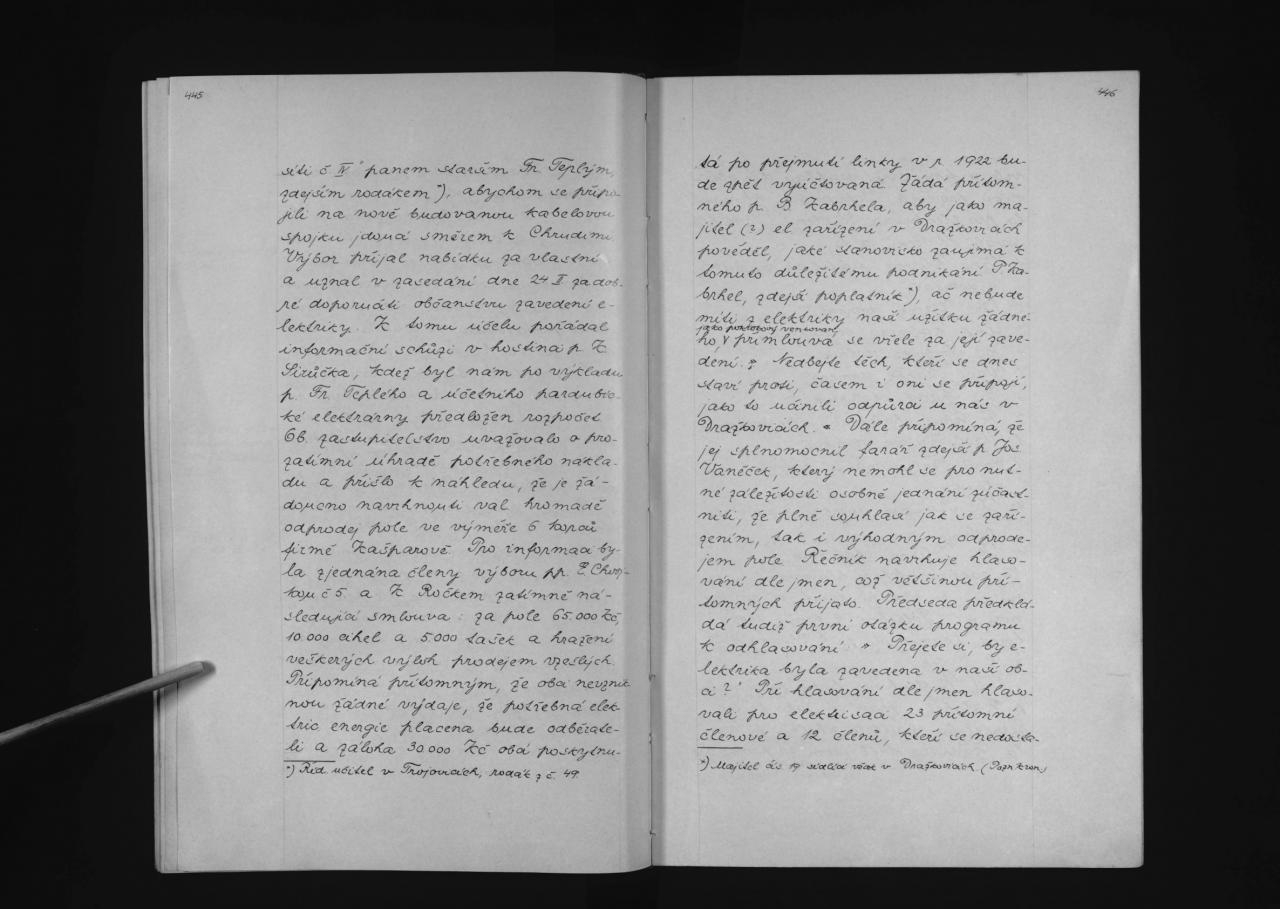 445
síti č IV' panem starším Fr. Teplým,
zdejším rodákem*), abychom se připo-
jili na nově budovanou kabelovou
spojku jdoucí směrem k Chrudimi.
Výbor přijal nabídku za vlastní
a uznal v zasedání dne 24 II za dob-
ré doporučiti občanstvu zavedení e-
lektriky. K tomu účelu pořádal
informační schůzi v hostinci p. K.
Sirůčka, kdež byl nám po výkladu
p. Fr. Teplého a účetního pardubic-
ké elektrárny předložen rozpočet
Ob. zastupitelstvo uvažovalo o pro-
zatímní úhradě potřebného nákla-
du a přišlo k náhledu, že je žá-
doucno navrhnouti val hromadě
odprodej pole ve výměře 6 korců
firmě Kašparově. Pro informaci by-
la zjednána členy výboru pp.
kou č 5. a K Ročkem zatímně ná-
sledující smlouva: za pole 65.000 Kč,
10.000 cihel a 5.000 tašek a hrazení
veškerých výloh prodejem vzešlých.
Připomíná přítomným, že obci nevznik-
nou žádné výdaje, že potřebná elek-
tric energie placena bude odběrate-
li a záloha 30.000 Kč obcí poskytnu-
*) Říd. učitel v Trojovicích, rodák z č. 49
446
tá po přejmutí linky v r. 1922 bu-
de zpět vyúčtovaná. Žádá přítom-
ného p. B. Kabrhela, aby jako ma-
jitel (?) el zařízení v Dražkovicích
pověděl, jaké stanovisko zaujímá k
tomuto důležitému podnikání. P. Ka-
brhel, zdejší poplatník*), ač nebude
míti z elektriky naší užitku žádné-
jako poktobový ventovaný
ho, přimlouvá se vřele za její zave-
dení. „ Nedbejte těch, kteří se dnes
staví proti, časem i oni se připojí,
jako to učinili odpůrci u nás v
Dražkovicích. “ Dále připomíná, že
jej splnomocnil farář zdejší p. Jos.
Vaněček, který nemohl se pro nut-
né záležitosti osobně jednání zúčast-
niti, že plně souhlasí jak se zaří-
zením, tak i výhodným odprode-
jem pole. Řečník navrhuje hlaso-
vání dle jmen, což většinou pří-
tomných přijato. Předseda předklá-
dá tudíž první otázku programu
k odhlasování: „ Přejete si, by e-
lektrika byla zavedena v naší ob-
ci?' Při hlasování dle jmen hlaso-
vali pro elektrisaci 23 přítomní
členové a 12 členů, kteří se nedosta-
*) Majitel čís 19 sídlící však v Dražkovicích. (Pozn kron.)